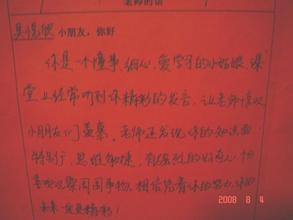 老师的话
小朋友，你好
你是一个懂事、细心、爱学习的小姑娘，课
堂上经常听到你精彩的发言，让老师喜欢
小朋友们羡慕。老师还发现你的知识面
特别广，思维敏捷，
喜欢观察周围事物，相信凭着你的努力，你的
未来会更精彩！
2008 8 4